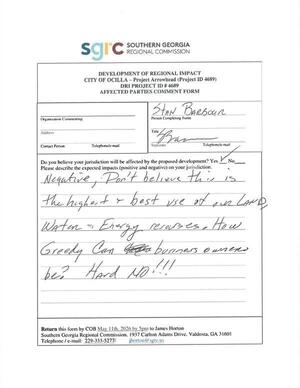 sgrc SOUTHERN GEORGIA
REGIONAL COMMISSION
DEVELOPMENT OF REGIONAL IMPACT
CITY OF OCILLA – Project Arrowhead (Project ID 4689)
DRI PROJECT ID # 4689
AFFECTED PARTIES COMMENT FORM
Stan Barbour
Organization Commenting:
Person Completing Form
Address
Title
Contact Person Telephone/e-mail
Signature Telephone/e-mail
Do you believe your jurisdiction will be affected by the proposed development? Yes ✓ No
Please describe the expected impacts (positive and negatives) on your jurisdiction.
Negative, Don't believe this is
the highest + best use of our LAND,
Water + Energy recourses. How
Greedy Can business owners
be? Hard NO!!!
Return this form by COB May 11th, 2026 by 5pm to James Horton
Southern Georgia Regional Commission, 1937 Carlton Adams Drive, Valdosta, GA 31601
Telephone / e-mail: 229-333-5277/ jhorton@sgrc.us